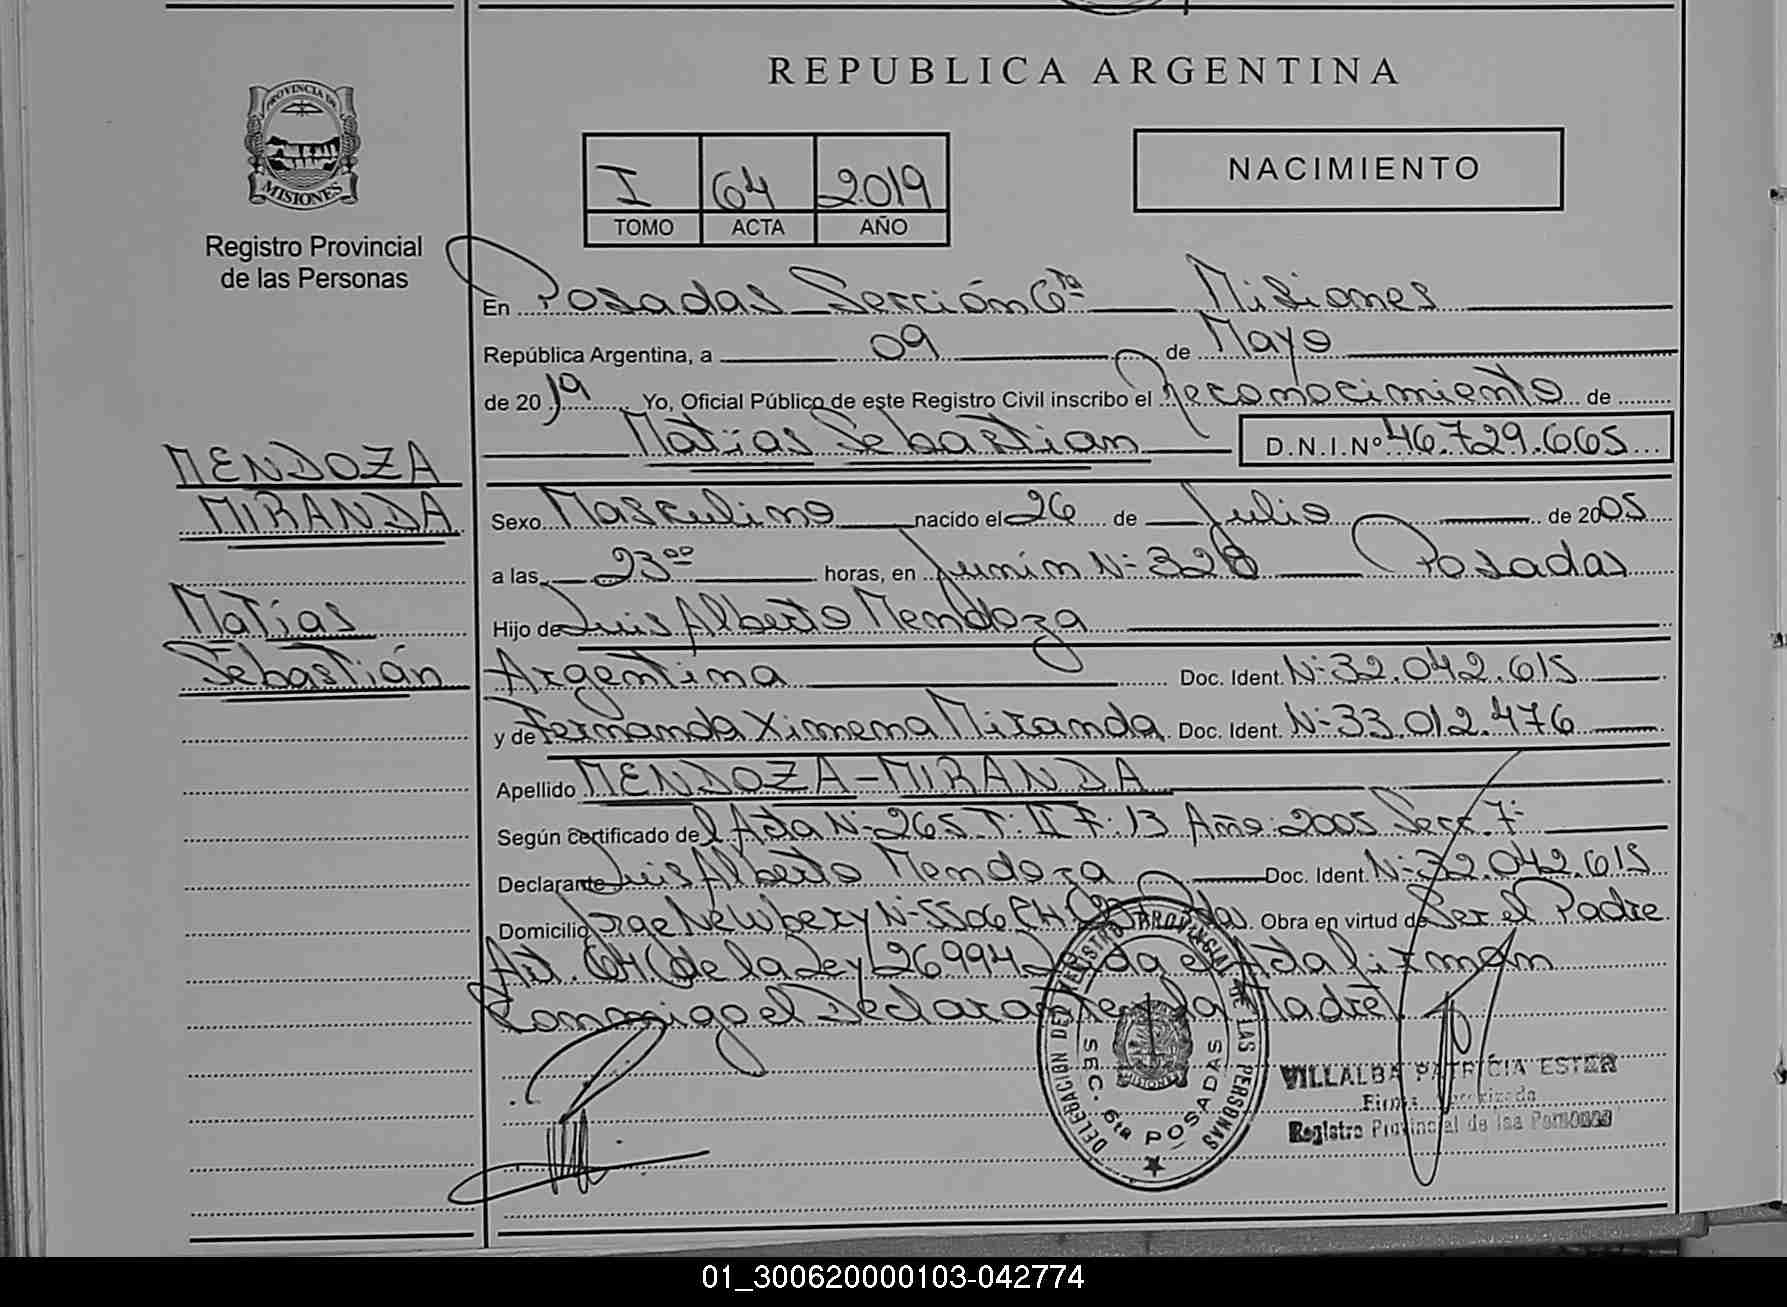 REPUBLICA ARGENTINA
PROVINCIA DE
MISIONES
Registro Provincial
de las Personas
I 64 2019
TOMO ACTA AÑO
NACIMIENTO
En Posadas Sección 6ta Misiones
República Argentina, a 09 de Mayo
de 2019 Yo, Oficial Público de este Registro Civil inscribo el Reconocimiento de
Matías Sebastian D.N.I.Nº 46.729.665
MENDOZA
MIRANDA
Matías
Sebastián
Sexo Masculino nacido el 26 de Julio de 2005
a las 23ºº horas, en Junín Nº 328 Posadas
Hijo de Luis Alberto Mendoza
Argentina Doc. Ident. Nº 32.042.615
y de Fernanda Ximena Miranda Doc. Ident. Nº 33.012.476
Apellido MENDOZA-MIRANDA
Según certificado del Acta Nº 265 T: II F: 13 Año: 2005 Secc. 7ª
Declarante Luis Alberto Mendoza Doc. Ident. Nº 32.042.615
Domicilio Jorge Newbery Nº 5506 CH Obra en virtud de Ser el Padre
Art. 64 (de la Ley 26994) el Acta firman
Conmigo el Declarante la Madre
DELEGACION DEL REGISTRO PROVINCIAL DE LAS PERSONAS
SEC. 6ta POSADAS
VILLALBA PATRICIA ESTER
Firma
Registro Provincial de las Personas
01_300620000103-042774